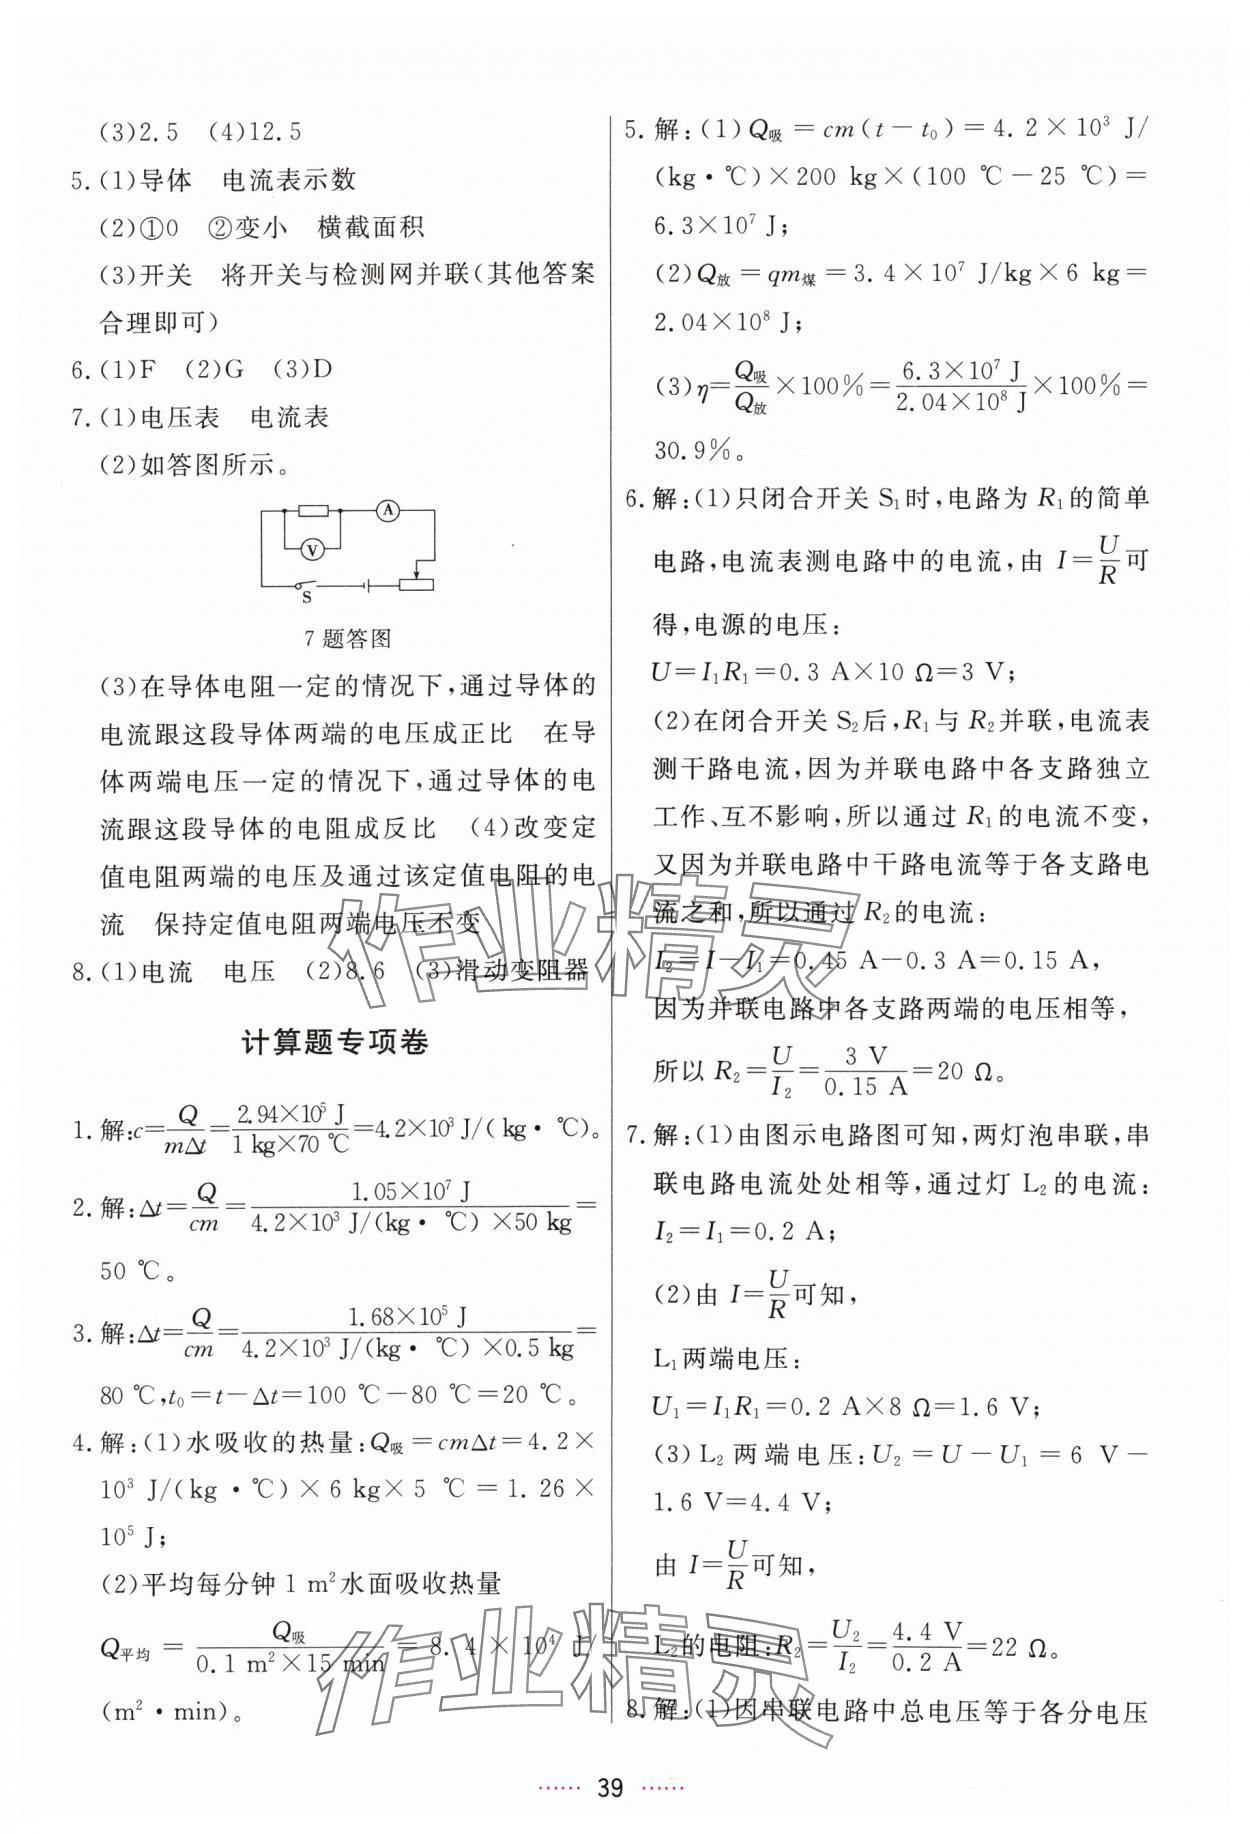 (3)2.5　(4)12.5
5.(1)导体　电流表示数
(2)①0　②变小　横截面积
(3)开关　将开关与检测网并联(其他答案
合理即可)
6.(1)F　(2)G　(3)D
7.(1)电压表　电流表
(2)如答图所示。
A
V
S
7题答图
(3)在导体电阻一定的情况下,通过导体的
电流跟这段导体两端的电压成正比　在导
体两端电压一定的情况下,通过导体的电
流跟这段导体的电阻成反比　(4)改变定
值电阻两端的电压及通过该定值电阻的电
流　保持定值电阻两端电压不变
8.(1)电流　电压　(2)8.6　(3)滑动变阻器
计算题专项卷
1.解:c=Q/(mΔt)=(2.94×10⁵ J)/(1 kg×70 ℃)=4.2×10³ J/(kg·℃)。
2.解:Δt=Q/(cm)=(1.05×10⁷ J)/(4.2×10³ J/(kg·℃)×50 kg)=
50 ℃。
3.解:Δt=Q/(cm)=(1.68×10⁵ J)/(4.2×10³ J/(kg·℃)×0.5 kg)=
80 ℃,t₀=t−Δt=100 ℃−80 ℃=20 ℃。
4.解:(1)水吸收的热量:Q吸=cmΔt=4.2×
10³ J/(kg·℃)×6 kg×5 ℃=1.26×
10⁵ J;
(2)平均每分钟1 m²水面吸收热量
Q平均=Q吸/(0.1 m²×15 min)=8.4×10⁴ J/
(m²·min)。
5.解:(1)Q吸=cm(t−t₀)=4.2×10³ J/
(kg·℃)×200 kg×(100 ℃−25 ℃)=
6.3×10⁷ J;
(2)Q放=qm煤=3.4×10⁷ J/kg×6 kg=
2.04×10⁸ J;
(3)η=Q吸/Q放×100%=(6.3×10⁷ J)/(2.04×10⁸ J)×100%=
30.9%。
6.解:(1)只闭合开关S₁时,电路为R₁的简单
电路,电流表测电路中的电流,由I=U/R可
得,电源的电压:
U=I₁R₁=0.3 A×10 Ω=3 V;
(2)在闭合开关S₂后,R₁与R₂并联,电流表
测干路电流,因为并联电路中各支路独立
工作、互不影响,所以通过R₁的电流不变,
又因为并联电路中干路电流等于各支路电
流之和,所以通过R₂的电流:
I₂=I−I₁=0.45 A−0.3 A=0.15 A,
因为并联电路中各支路两端的电压相等,
所以R₂=U/I₂=3 V/0.15 A=20 Ω。
7.解:(1)由图示电路图可知,两灯泡串联,串
联电路电流处处相等,通过灯L₂的电流:
I₂=I₁=0.2 A;
(2)由I=U/R可知,
L₁两端电压:
U₁=I₁R₁=0.2 A×8 Ω=1.6 V;
(3)L₂两端电压:U₂=U−U₁=6 V−
1.6 V=4.4 V;
由I=U/R可知,
L₂的电阻:R₂=U₂/I₂=4.4 V/0.2 A=22 Ω。
8.解:(1)因串联电路中总电压等于各分电压
作业精灵
作业精灵
39